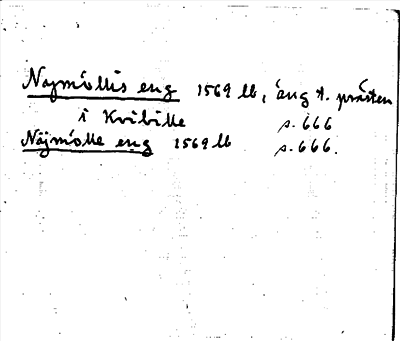 Nøjmøllis eng 1569 lb, äng t. prästen
i Kvibille s. 666
Nøjmølle eng 1569 lb s. 666.